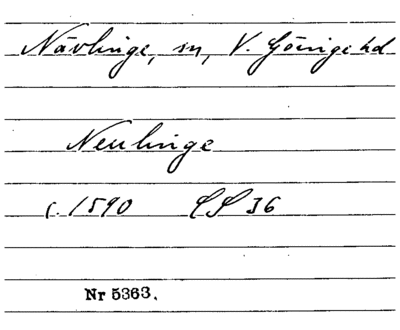 Nävlinge, sn, V. Göinge hd
Neulinge
c. 1590 LS 36
Nr 5363.